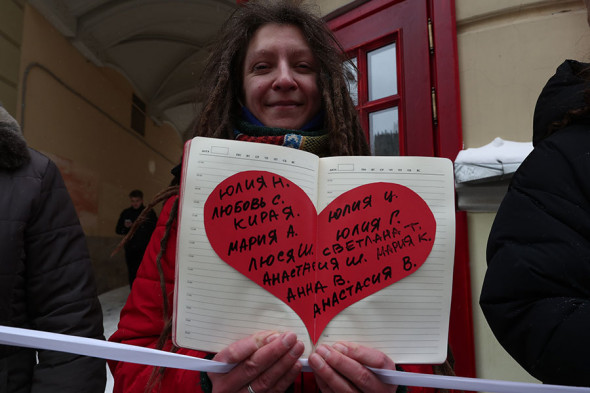 ЮЛИЯ Н.
ЛЮБОВЬ С.
КИРА Я.
МАРИЯ А.
ЛЮСЯ Ш.
АНАСТАСИЯ Ш.
АННА В.
АНАСТАСИЯ В.
ЮЛИЯ Ц.
ЮЛИЯ Г.
СВЕТЛАНА Т.
МАРИЯ К.